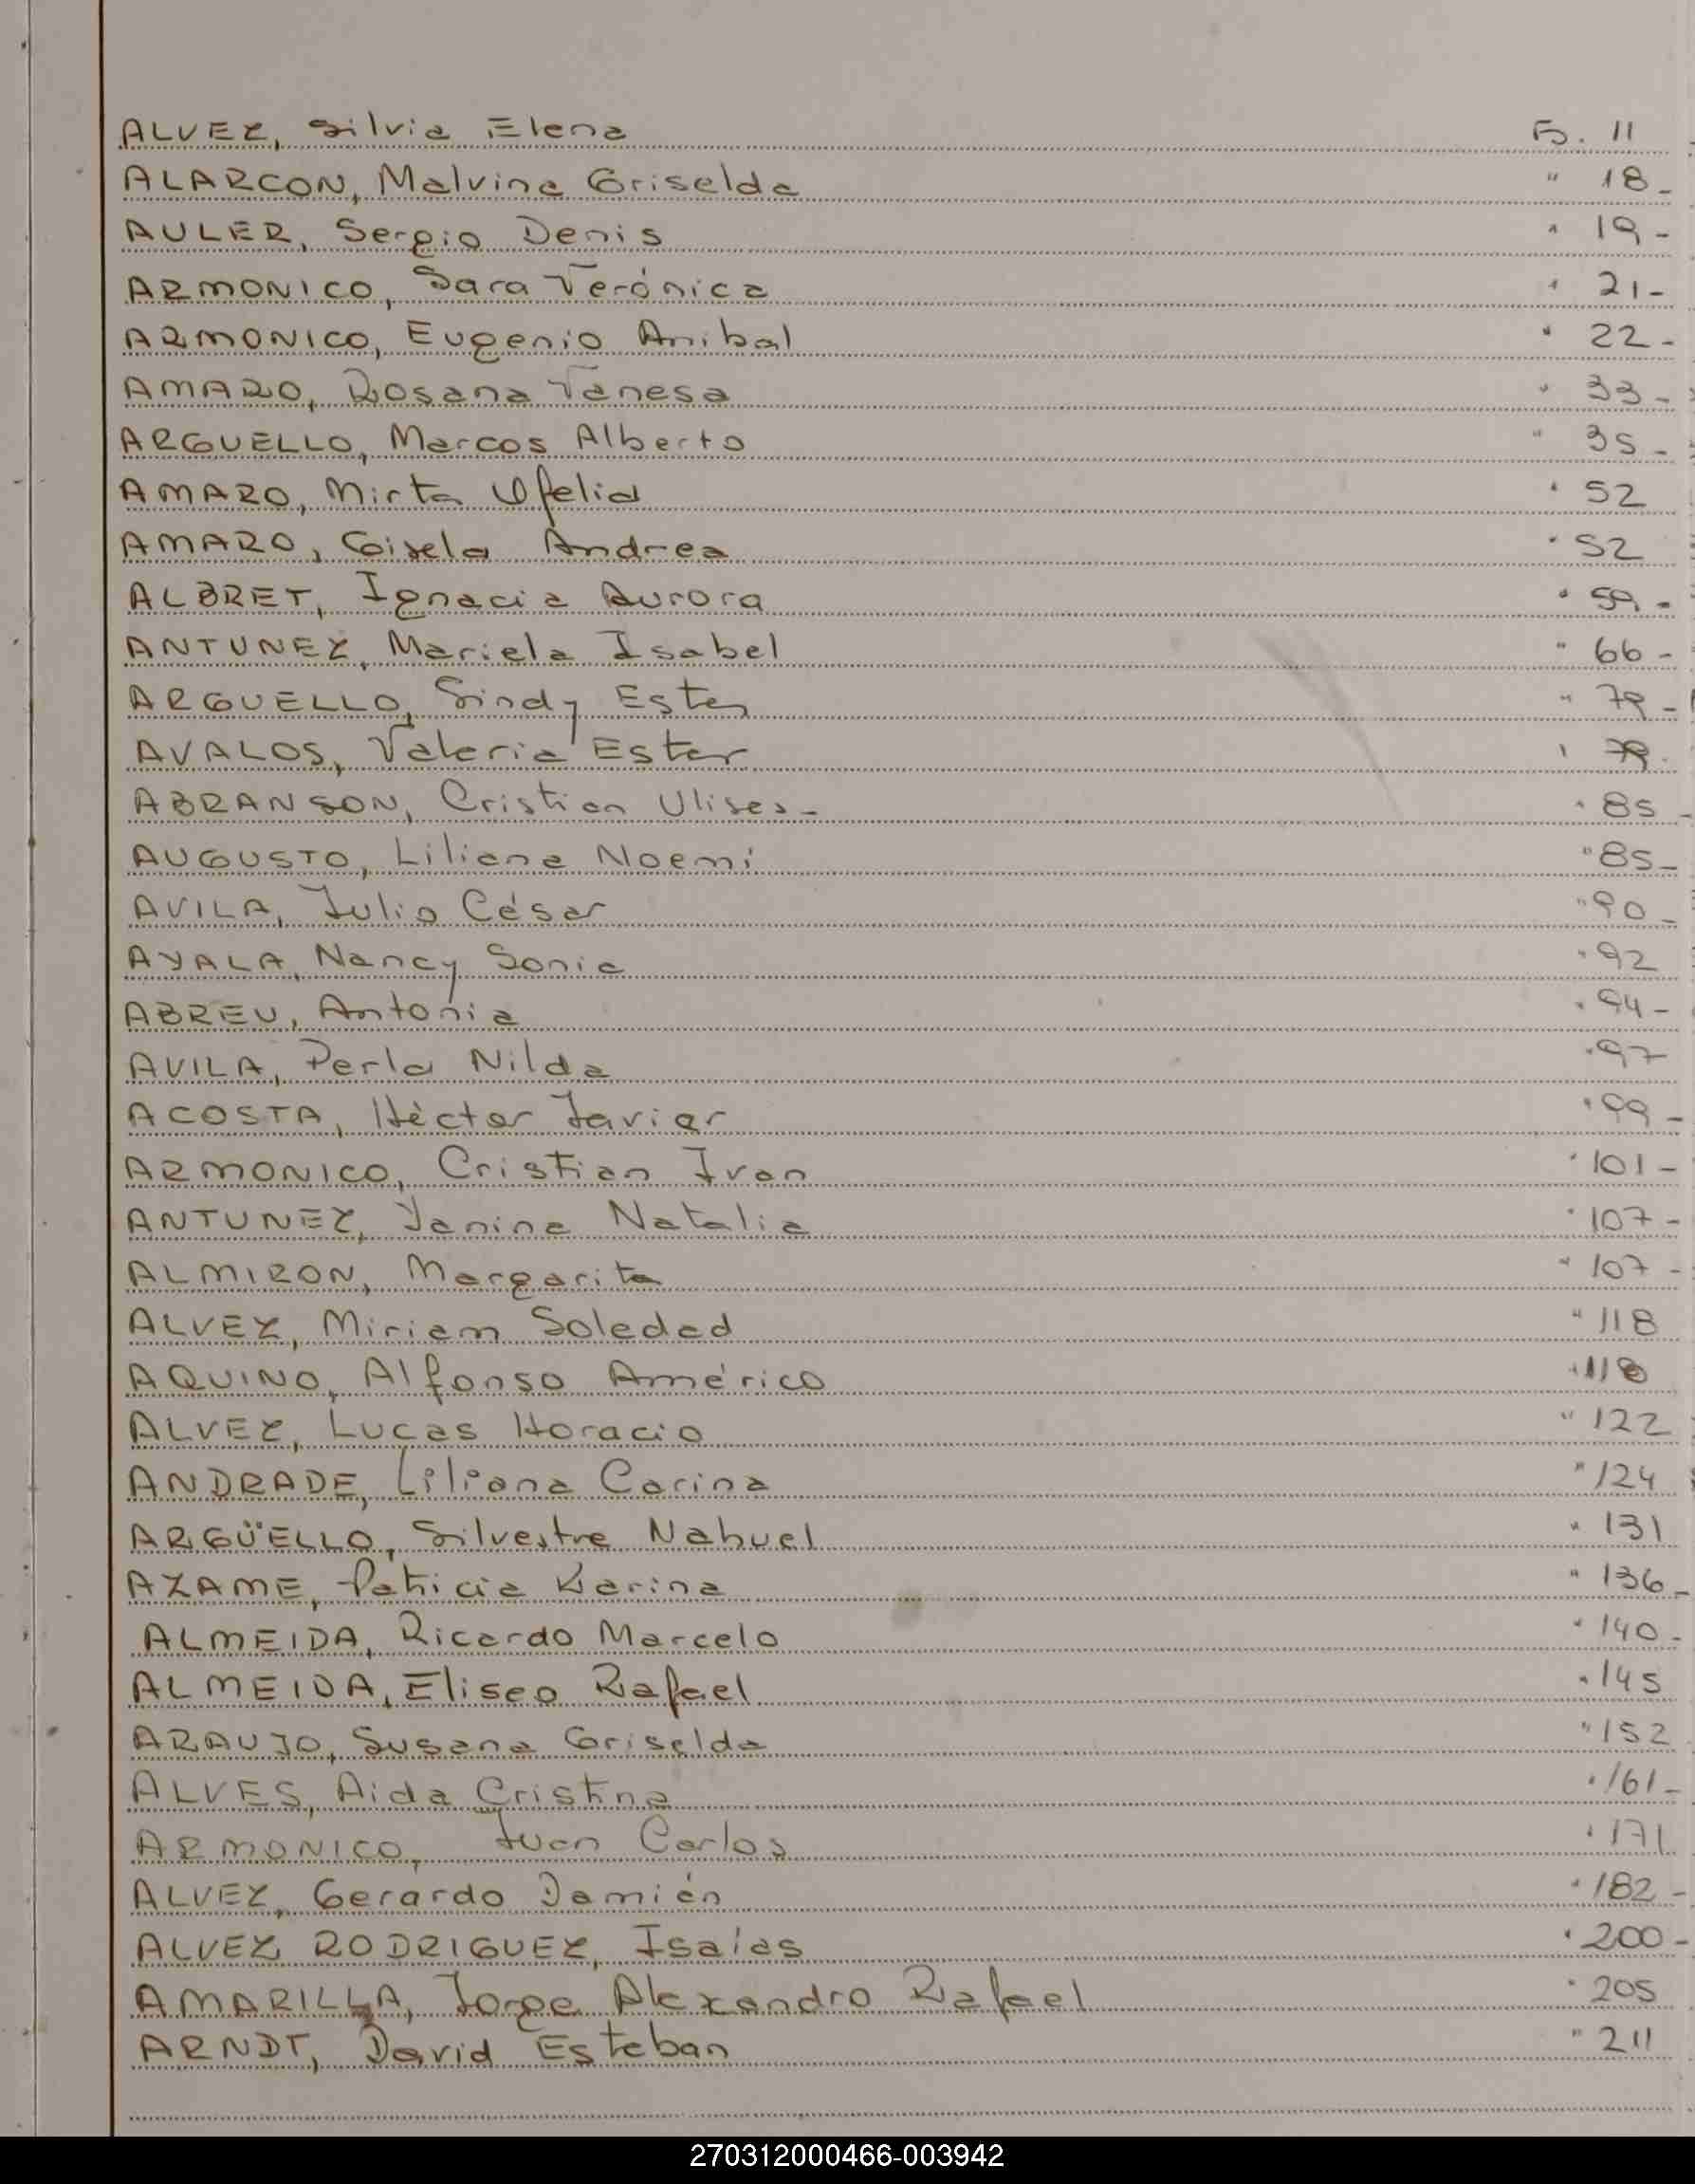 ALVEZ, Silvia Elena Fo. 11
ALARCON, Malvina Griselda " 18-
AULER, Sergio Denis " 19-
ARMONICO, Sara Verónica " 21-
ARMONICO, Eugenio Anibal " 22-
AMARO, Rosana Vanesa " 33-
ARGUELLO, Marcos Alberto " 35-
AMARO, Mirta Ofelia " 52
AMARO, Gisela Andrea " 52
ALBRET, Ignacia Aurora " 59-
ANTUNEZ, Mariela Isabel " 66-
ARGUELLO, Sindy Ester " 79-
AVALOS, Valeria Ester "
ABRANSON, Cristian Ulises- " 85-
AUGUSTO, Liliana Noemí " 85-
AVILA, Julio César " 90-
AYALA, Nancy Sonia " 92
ABREU, Antonia " 94-
AVILA, Perla Nilda " 97
ACOSTA, Héctor Javier " 99-
ARMONICO, Cristian Ivan " 101-
ANTUNEZ, Yanina Natalia " 107-
ALMIRON, Margarita " 107-
ALVEZ, Miriam Soledad " 118
AQUINO, Alfonso Américo " 118
ALVEZ, Lucas Horacio " 122
ANDRADE, Liliana Carina " 124
ARGÜELLO, Silvestre Nahuel " 131
AZAME, Patricia Karina " 136-
ALMEIDA, Ricardo Marcelo " 140-
ALMEIDA, Eliseo Rafael " 145
ARAUJO, Susana Griselda " 152
ALVES, Aida Cristina " 161-
ARMONICO, Juan Carlos " 171
ALVEZ, Gerardo Damián " 182-
ALVEZ RODRIGUEZ, Isaías " 200-
AMARILLA, Jorge Alexandro Rafael " 205
ARNDT, David Esteban " 211
270312000466-003942